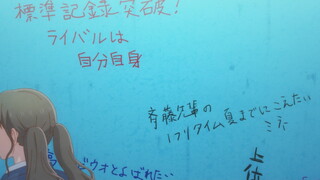 標準記録突破!
ライバルは
自分自身
斉藤先輩の
フリタイム夏までにこえたい
ミテ
上位
ウオとよばれたい